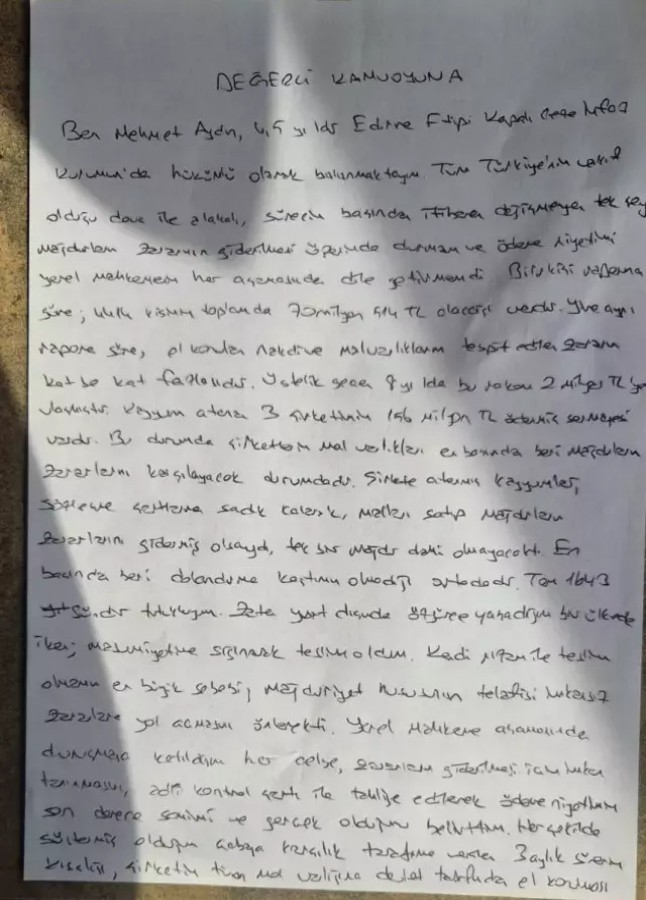 DEĞERLİ KAMUOYUNA
Ben Mehmet Aydın, 4,5 yıldır Edirne F tipi Kapalı Ceza İnfaz
Kurumu'da hükümlü olarak bulunmaktayım. Tüm Türkiye'nin vakıf
olduğu dava ile alakalı, sürecin başından itibaren değişmeyen tek şey
mağdurların zararının giderilmesi üzerinde durmam ve ödeme niyetimi
yerel mahkemenin her aşamasında dile getirmemdi. Bilirkişi raporuna
göre; kısmın toplamda 70 milyon TL olacağı vardır. Yine aynı
rapora göre, el konulan nakdi ve mal varlıklarım tespit edilen zararın
kat be kat fazlasıdır. Üstelik geçen 4 yılda bu rakam 2 milyar TL'ye
ulaşmıştır. Kayyum atanan 3 şirketimin 156 milyon TL ödenmiş sermayesi
vardı. Bu durumda şirketlerin mal varlıkları en başından beri mağdurların
zararlarını karşılayacak durumdadır. Şirkete atanmış kayyumlar,
sözleşme şartlarına sadık kalarak, malları satıp mağdurların
zararlarını gidermiş olsaydı, tek bir mağdur dahi olmayacaktı. En
başında beri dolandırma kastımın olmadığı ortadadır. Tam 1643
gündür tutukluyum. Zaten yurt dışında özgürce yaşadığım bir ülkede
iken; masumiyetime sığınarak teslim oldum. Kendi rızam ile teslim
olmamın en büyük sebebi; mağduriyet hususunun telafisi imkansız
zararlara yol açmasını önlemekti. Yerel Mahkeme aşamasında
duruşmaya katıldığım her celse, zararların giderilmesi için imkan
tanınması, adli kontrol şartı ile tahliye edilerek ödeme niyetimin
son derece samimi ve gerçek olduğunu belirttim. Her şekilde
göstermiş olduğum çabaya karşılık tarafıma verilen 3 aylık sürenin
kısalığı, şirketin tüm mal varlığına devlet tarafından el konması